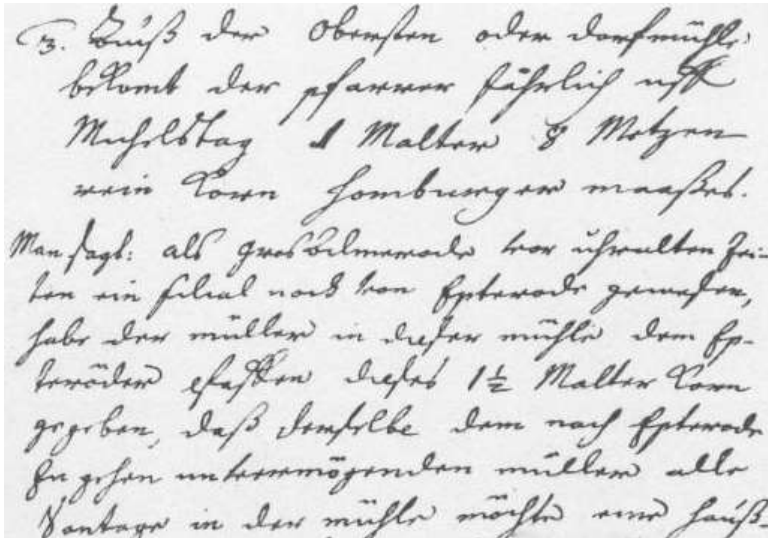 3. Auß der Obersten oder dorfmühle
bekomt der pfarrer jährlich uff
Michelstag 1 Malter 8 Metzen
rein Korn Homburger maaßes.
Man sagt: als Grosalmerode vor uhralten Zei-
ten ein filial noch von Epterode gewesen,
habe der müller in dieser mühle dem Ep-
teröder pfaffen dieses 1½ Malter Korn
gegeben, daß derselbe dem nach Epterode
zu gehen unvermögenden müller alle
Sontage in der mühle möchte eine hauß-